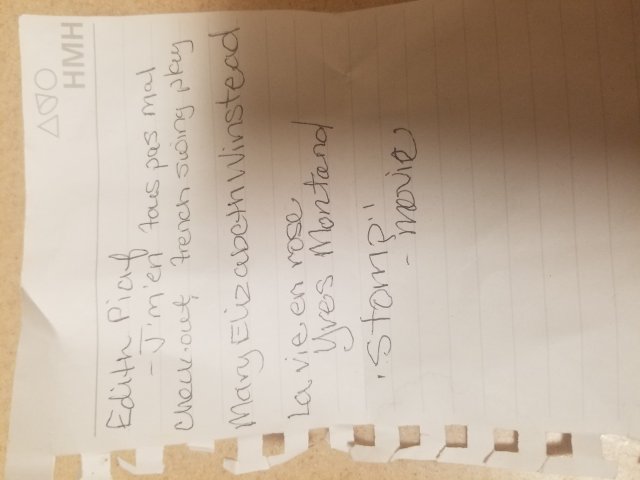 HMH
Edith Piaf
- J'm'en tous pas mal
check-out french swing play
Mary Elizabeth Winstead
La vie en rose
Yves Montand
"Stomp"
- movie